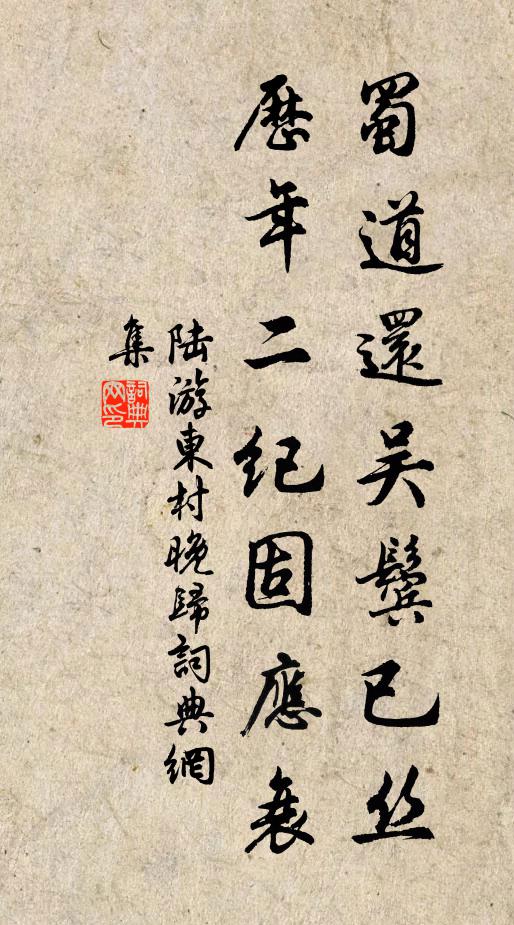 蜀道還吳鬢已丝
歷年二紀固應衰
陸游東村晚歸詞典網
集
詞典
网印